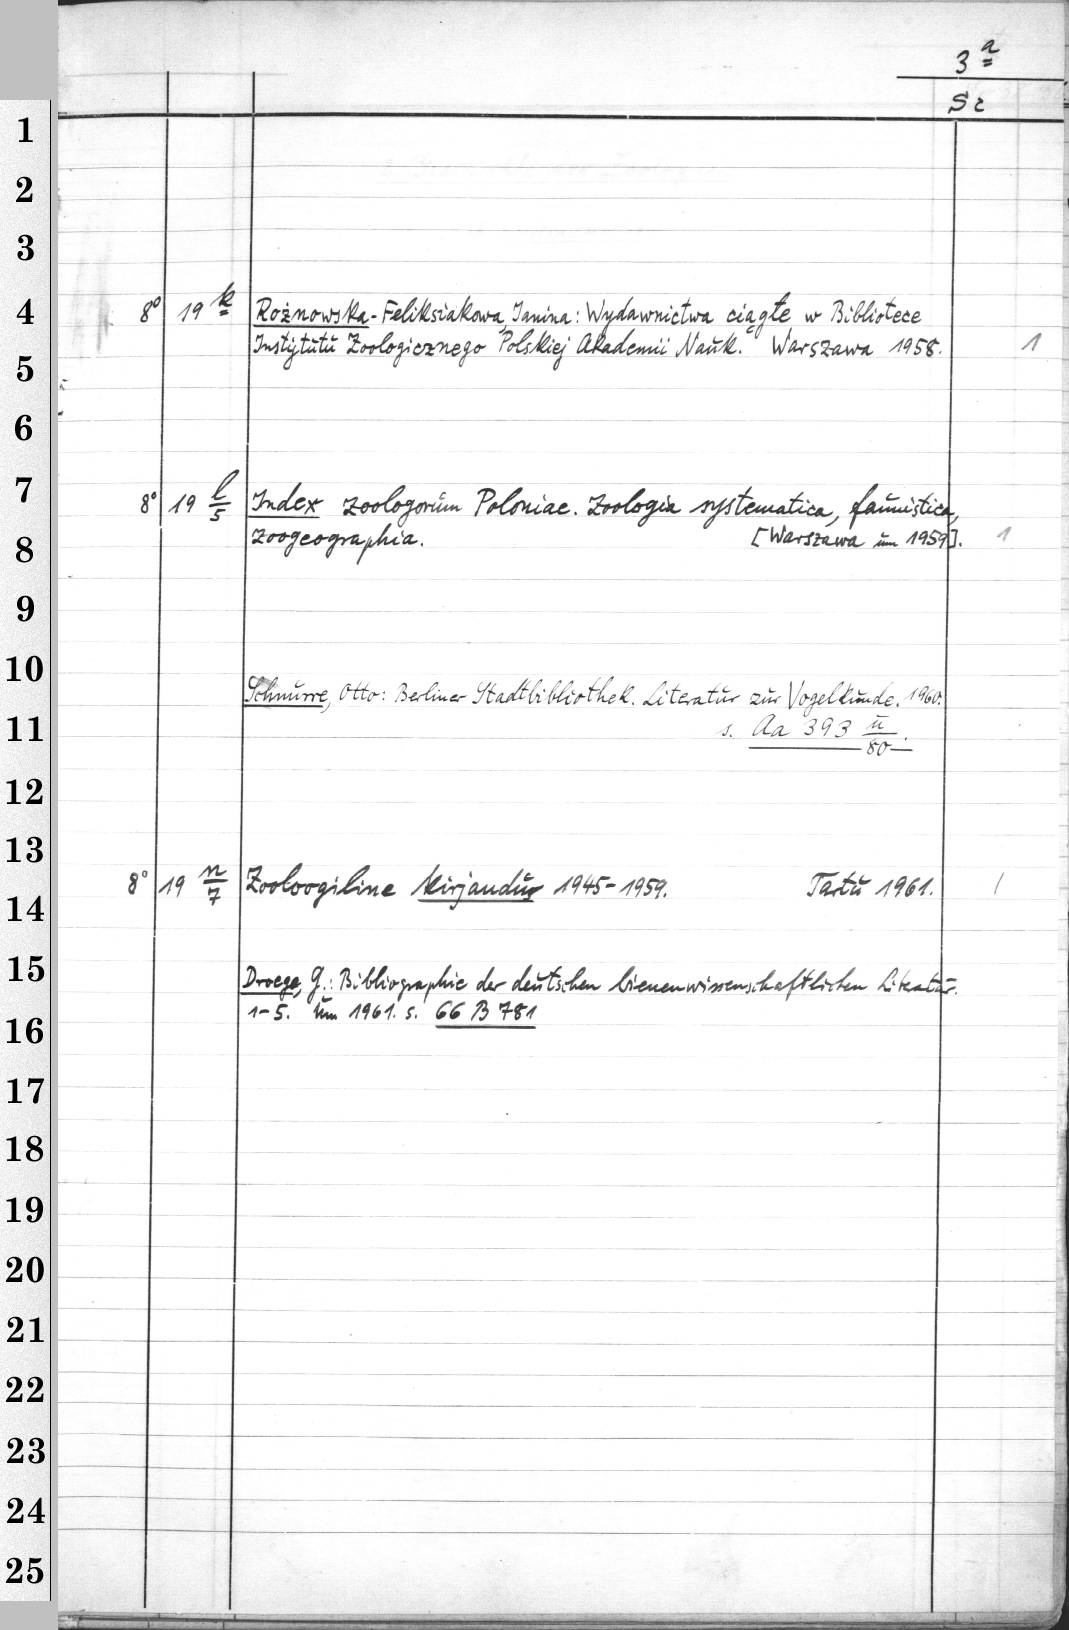 3 a
Sz
1
2
3
4
5
6
7
8
9
10
11
12
13
14
15
16
17
18
19
20
21
22
23
24
25
8° 19 k Rożnowska-Feliksiakowa, Janina: Wydawnictwa ciągłe w Bibliotece
Instytutu Zoologicznego Polskiej Akademii Nauk. Warszawa 1958. 1
8° 19 l/5 Index zoologorum Poloniae. Zoologia systematica, faunistica,
zoogeographia. [Warszawa um 1959]. 1
Schnurre, Otto: Berliner Stadtbibliothek. Literatur zur Vogelkunde. 1960.
s. Aa 393 u/80.
8° 19 n/7 Zooloogiline kirjandus 1945-1959. Tartu 1961. 1
Droege, G.: Bibliographie der deutschen bienenwissenschaftlichen Literatur.
1-5. Um 1961. s. 66 B 781